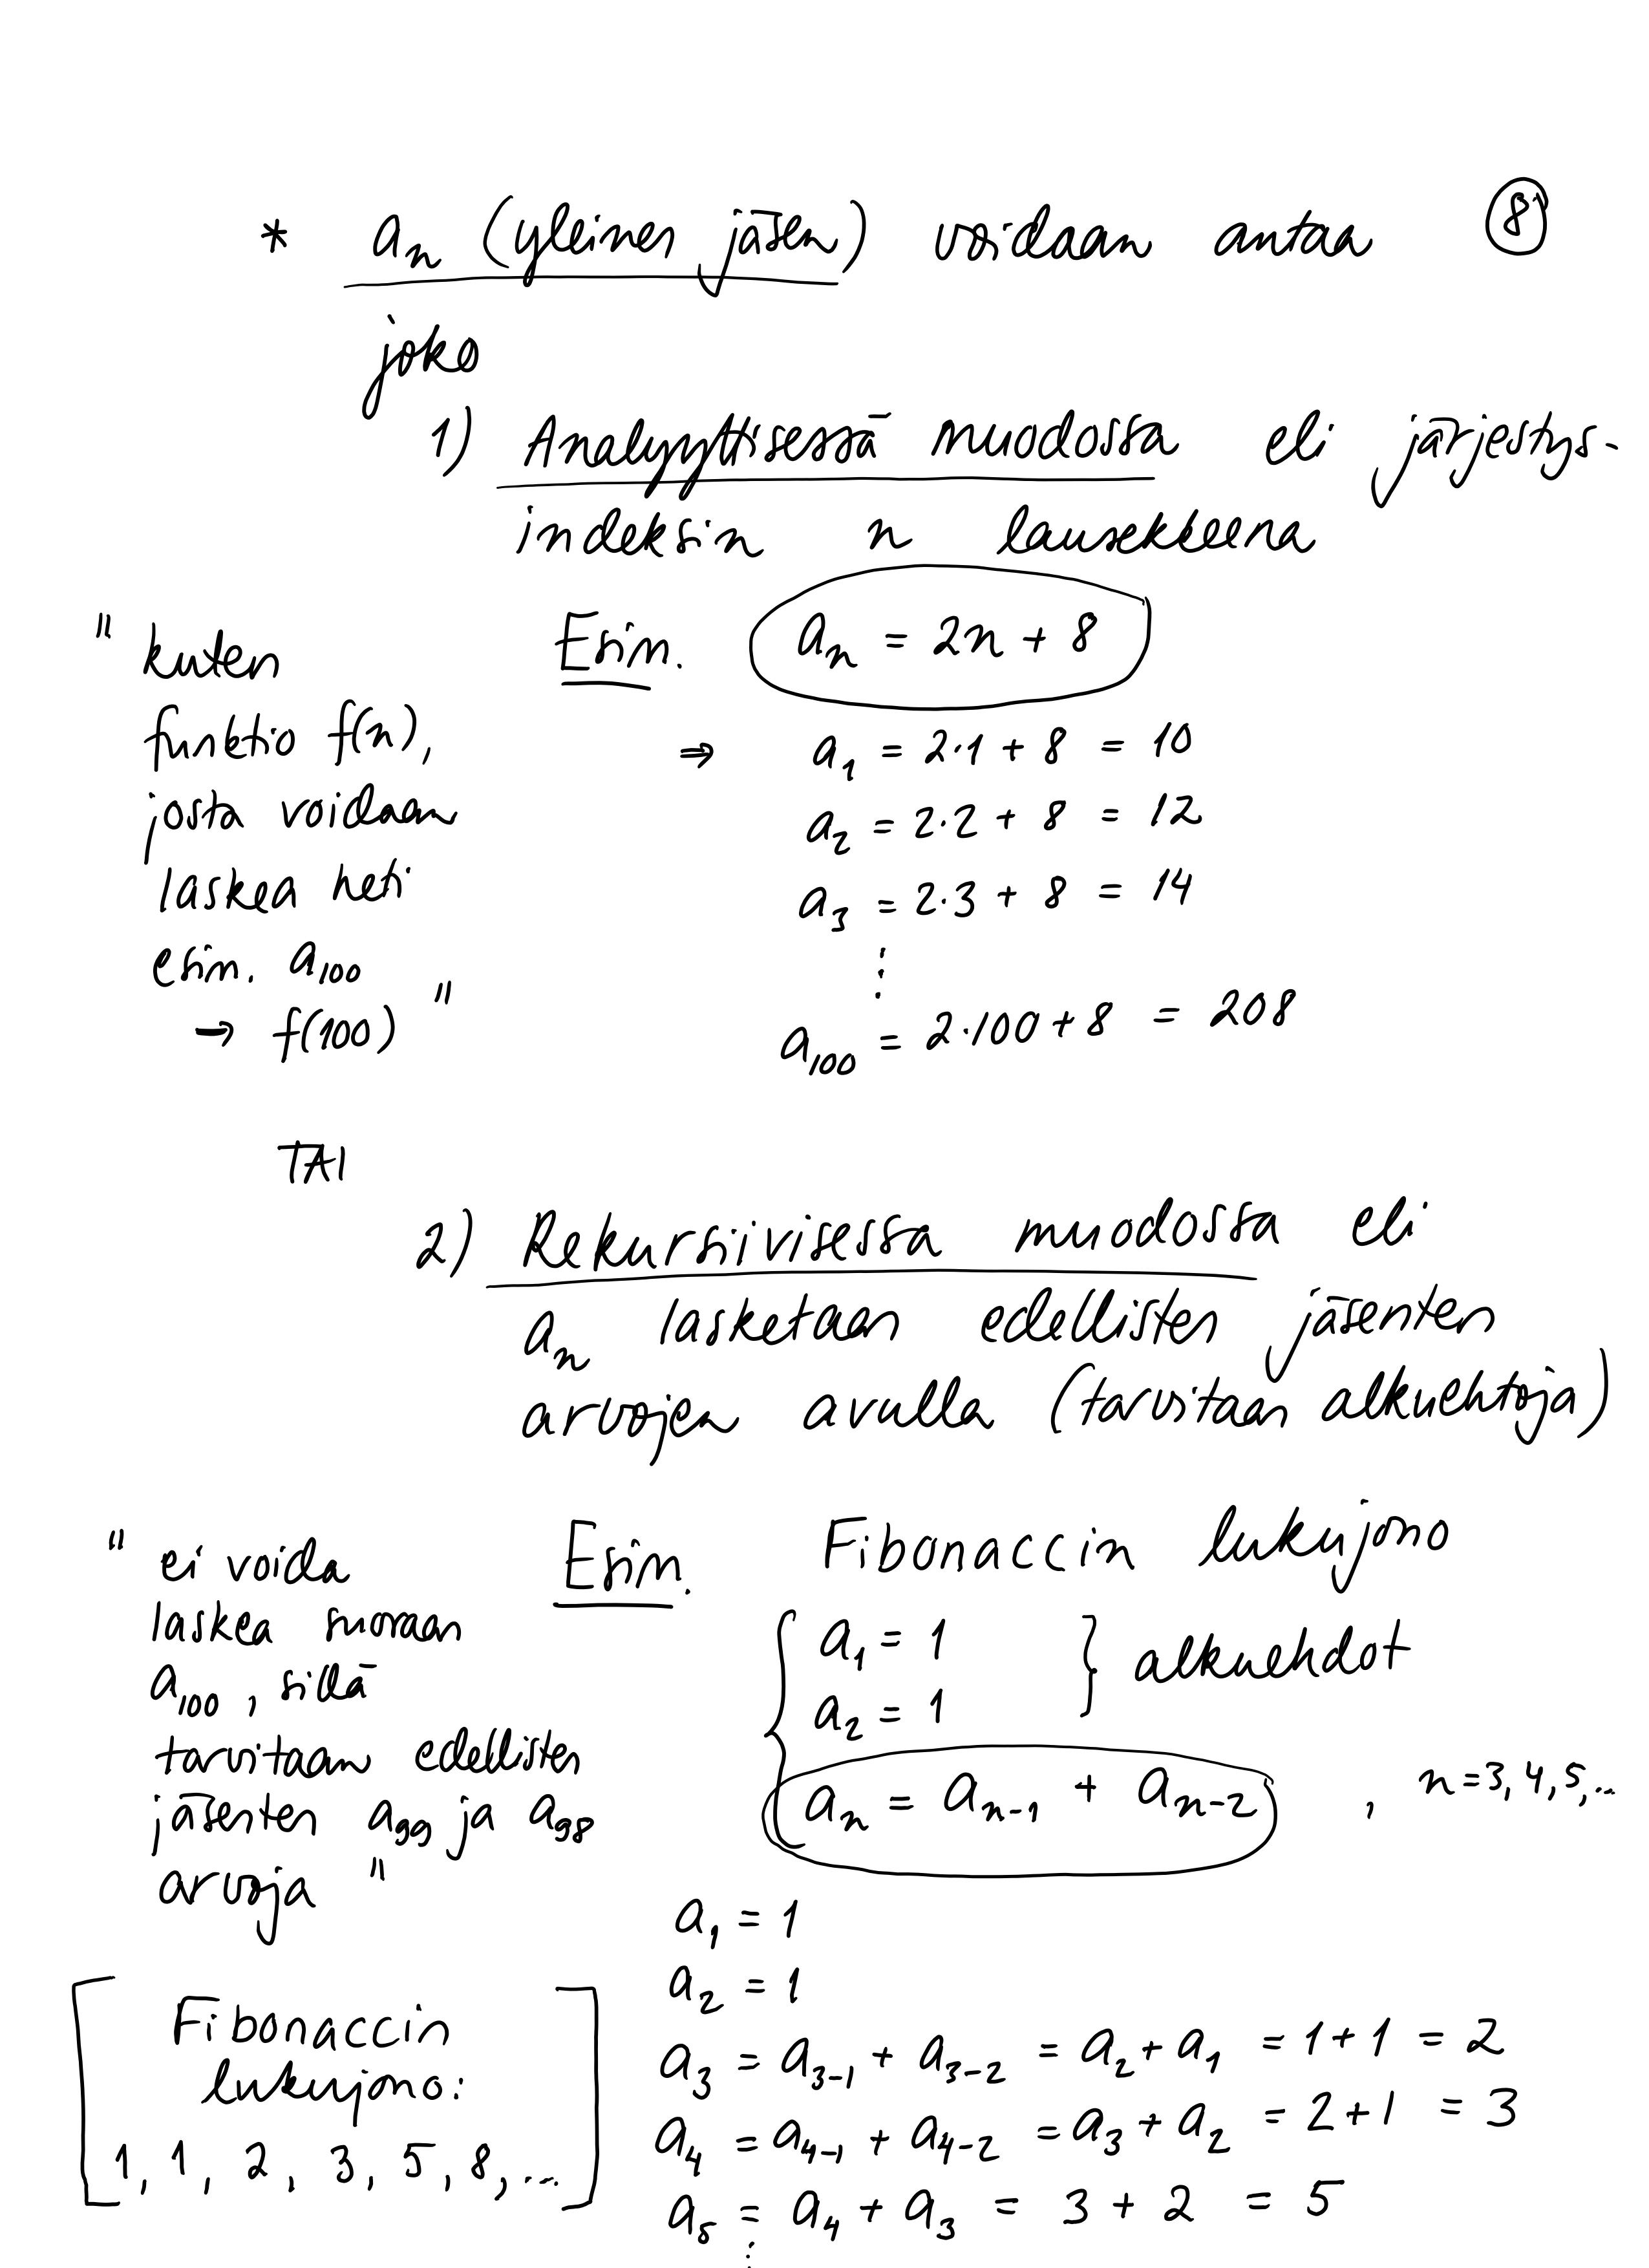 * aₙ (yleinen jäsen) voidaan antaa ⑧
joko
1) Analyyttisessä muodossa eli järjestys-
indeksin n lausekkeena
Esim. aₙ = 2n + 8
" kuten
funktio f(n),
josta voidaan
laskea heti
esim. a₁₀₀
→ f(100) "
⇒ a₁ = 2·1 + 8 = 10
a₂ = 2·2 + 8 = 12
a₃ = 2·3 + 8 = 14
⋮
a₁₀₀ = 2·100 + 8 = 208
TAI
2) Rekursiivisessa muodossa eli
aₙ lasketaan edellisten jäsenten
arvojen avulla (tarvitaan alkuehtoja)
" ei voida
laskea suoraan
a₁₀₀, sillä
tarvitaan edellisten
jäsenten a₉₉ ja a₉₈
arvoja "
Esim. Fibonaccin lukujono
{ a₁ = 1 } alkuehdot
a₂ = 1
aₙ = aₙ₋₁ + aₙ₋₂ , n = 3, 4, 5, ...
a₁ = 1
a₂ = 1
a₃ = a₃₋₁ + a₃₋₂ = a₂ + a₁ = 1 + 1 = 2
a₄ = a₄₋₁ + a₄₋₂ = a₃ + a₂ = 2 + 1 = 3
a₅ = a₄ + a₃ = 3 + 2 = 5
⋮
[ Fibonaccin
lukujono:
1, 1, 2, 3, 5, 8, ... ]